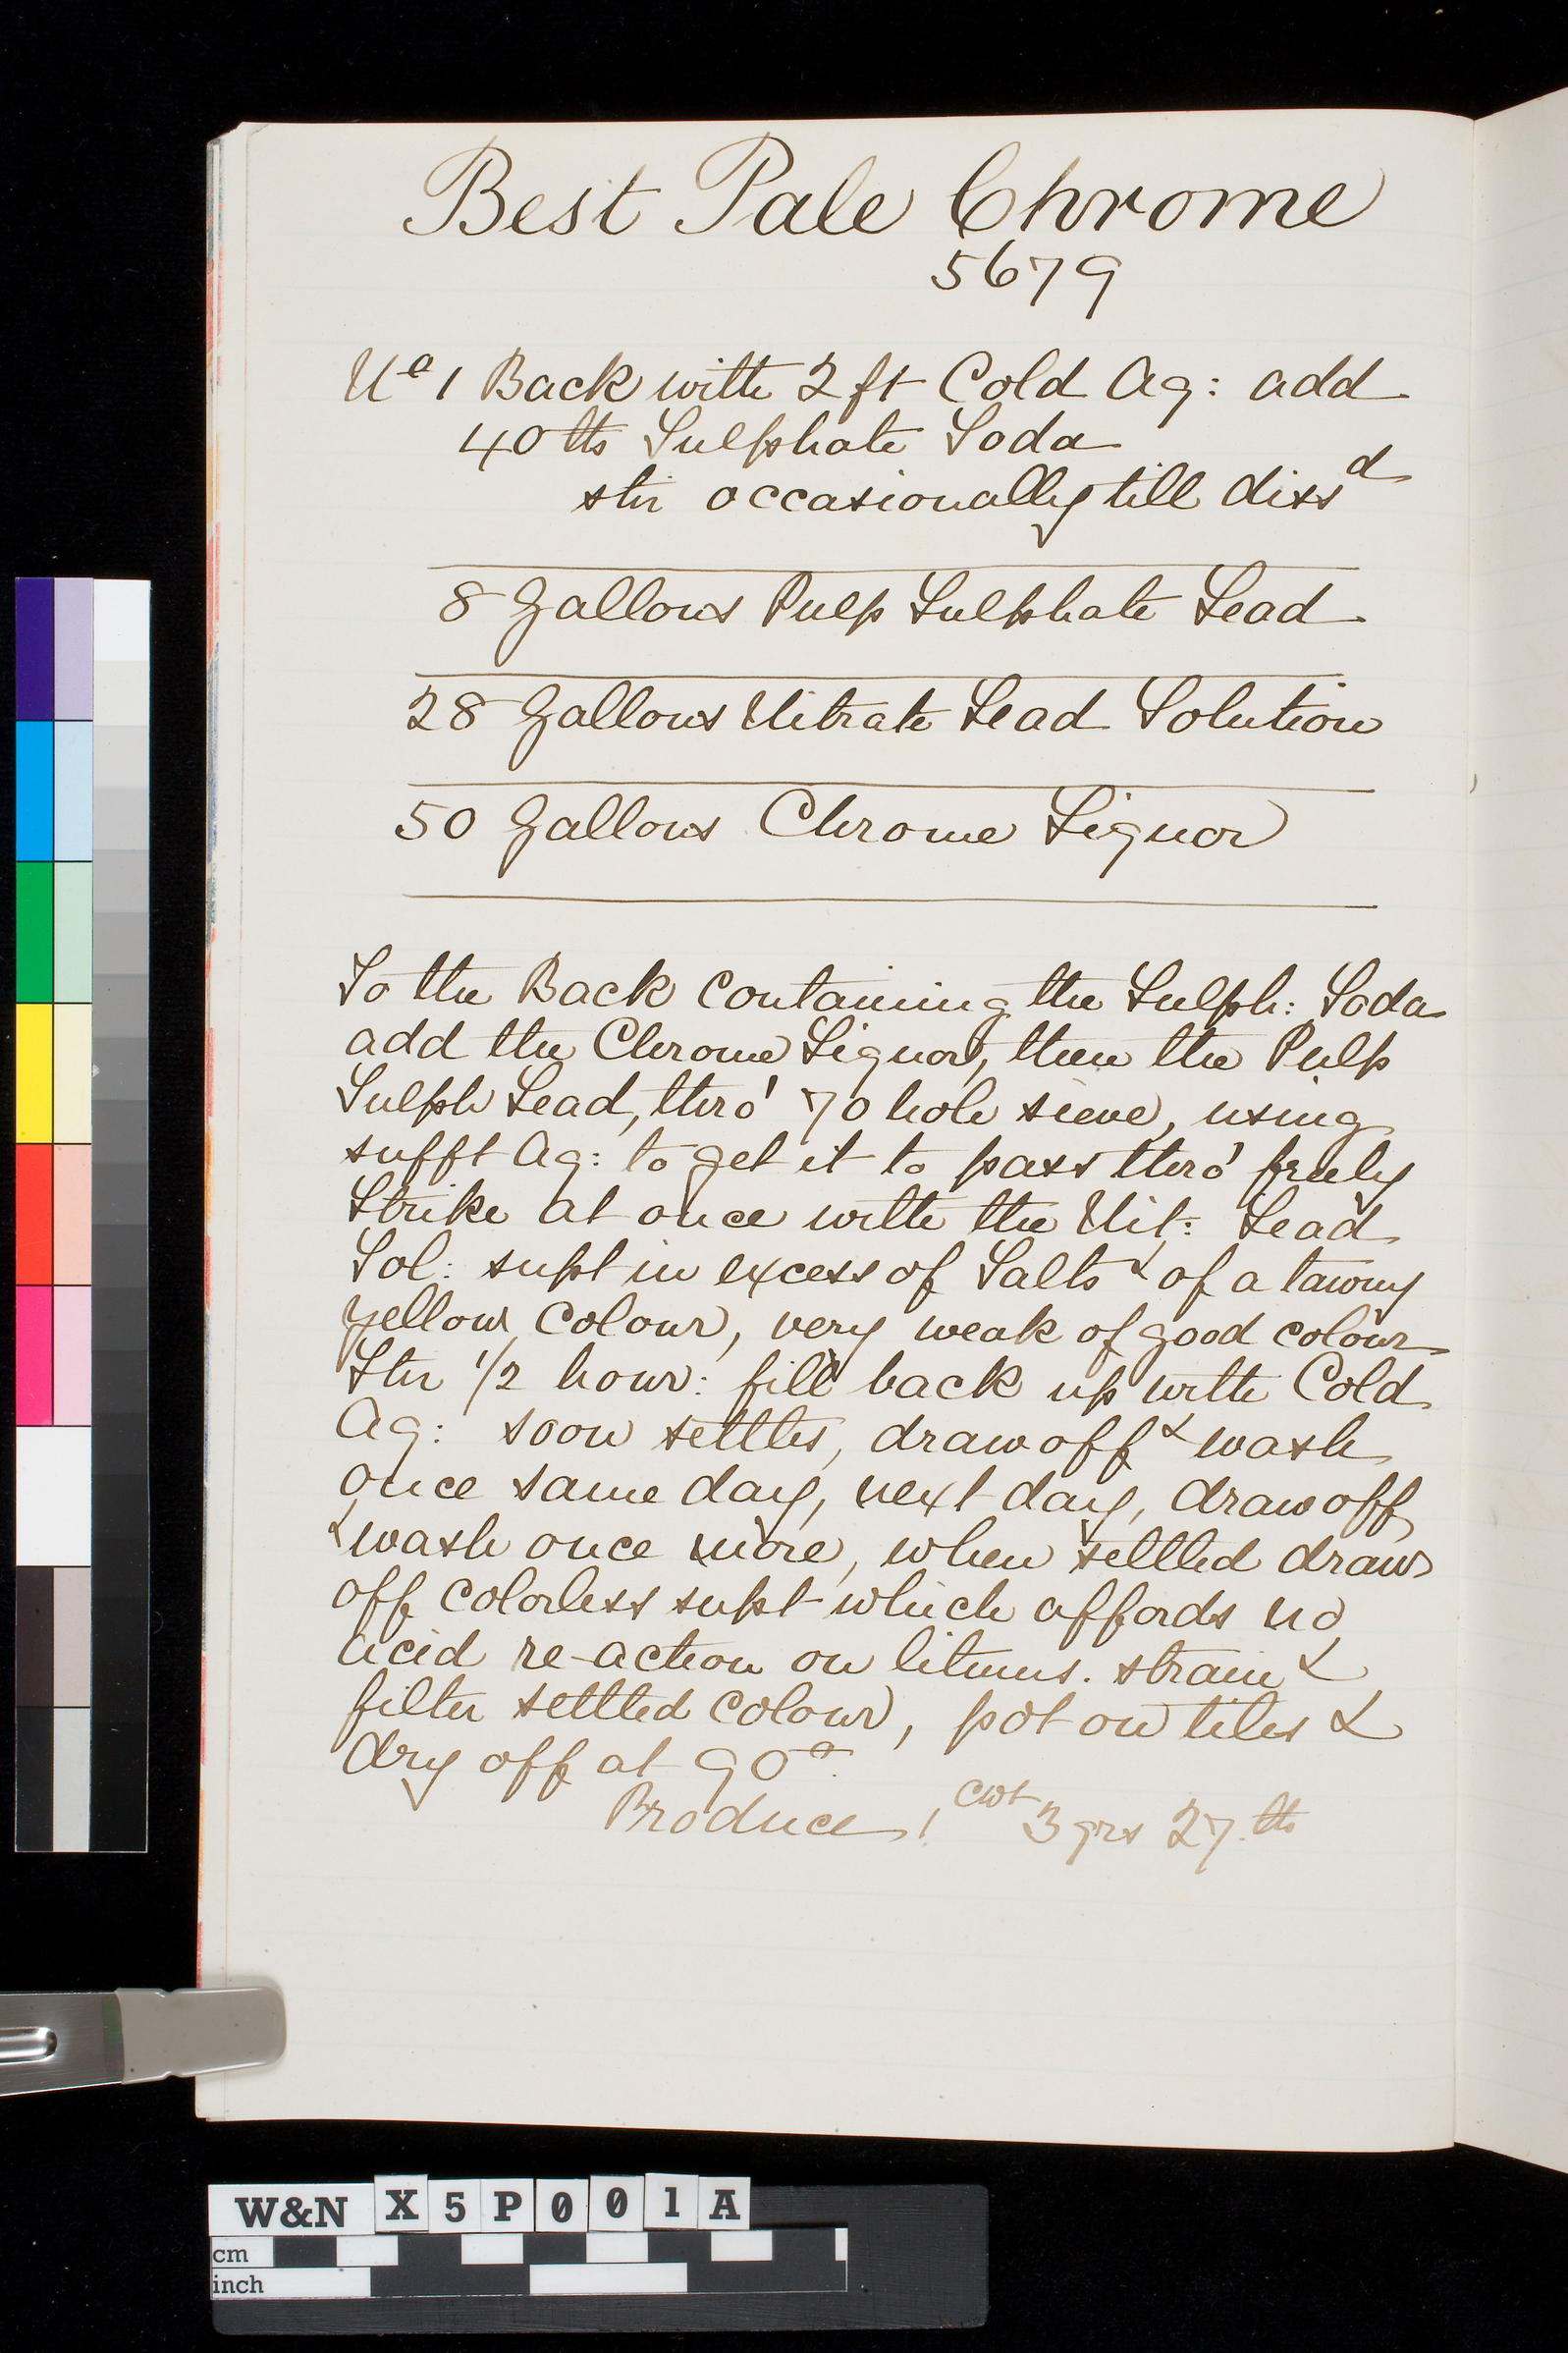 Best Pale Chrome
5679
No 1 Back with 2 ft Cold Aq: add
40 lbs Sulphate Soda
stir occasionally till dissd
8 Gallons Pulp Sulphate Lead
28 Gallons Nitrate Lead Solution
50 Gallons Chrome Liquor
To the Back containing the Sulph: Soda
add the Chrome Liquor, then the Pulp
Sulph Lead, thro' 70 hole sieve, using
sufft Aq: to get it to pass thro' freely
Strike at once with the Nit: Lead
Sol: supt in excess of Salts & of a tawny
yellow colour, very weak of good colour
Stir 1/2 hour: fill back up with Cold
Aq: soon settles, draw off & wash
once same day, next day, draw off
& wash once more, when settled draw
off colorless supt which affords no
acid re-action on litmus. strain &
filter settled colour, pot on tiles &
dry off at 90°.
Produce 1 cwt 3 qrs 27 lbs
W&N X5P001A
cm
inch